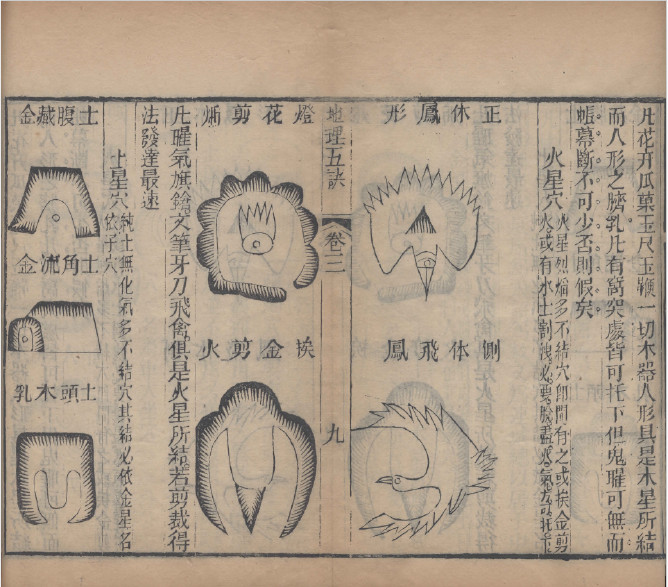 凡花卉瓜菓玉尺玉鞭一切木器人形具是木星所結
而人形之臍乳凡有窩突處皆可托下但鬼曜可無而
帳幕斷不可少否則假矣
火星穴
火星烈熖多不結穴卽間有之或挨金剪
火或有水土割洩必要脫盡火氣方可托
正体鳳形
側体飛鳳
地理五訣
卷三
九
燈花剪熖
挨金剪火
凡曜氣旗鎗文筆牙刀飛禽俱是火星所結若剪裁得
法發達最速
土星穴
純土無化氣多不結穴其結必依金星名
依子穴
土腹藏金
土角流金
土頭木乳